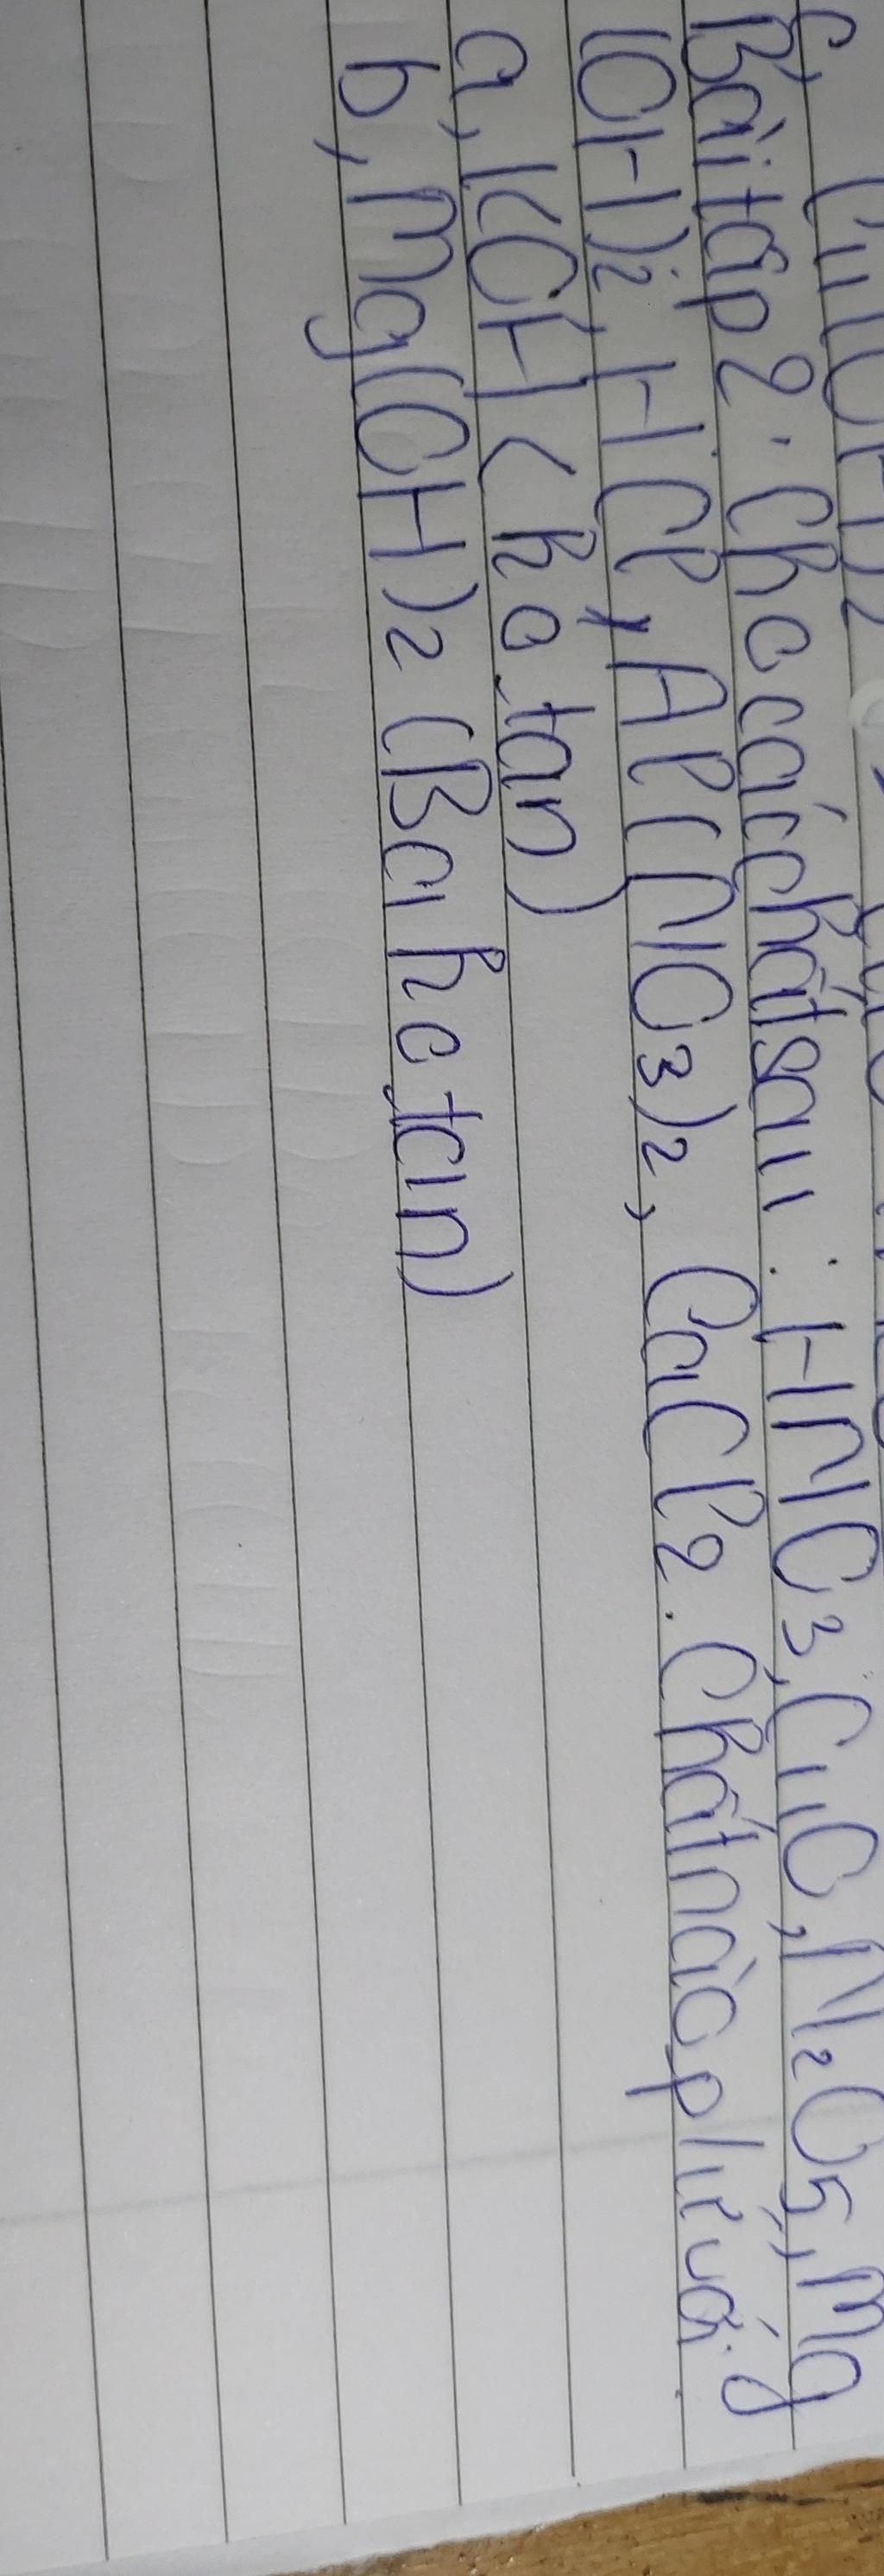 Bài tập 2: Cho các chất sau: HNO3, CuO, N2O5, Mg
(OH)2, HCl, Al(NO3)2, CaCl2. Chất nào pứ với:
a, KOH (ho tan)
b, Mg(OH)2 (Ba ho tan)